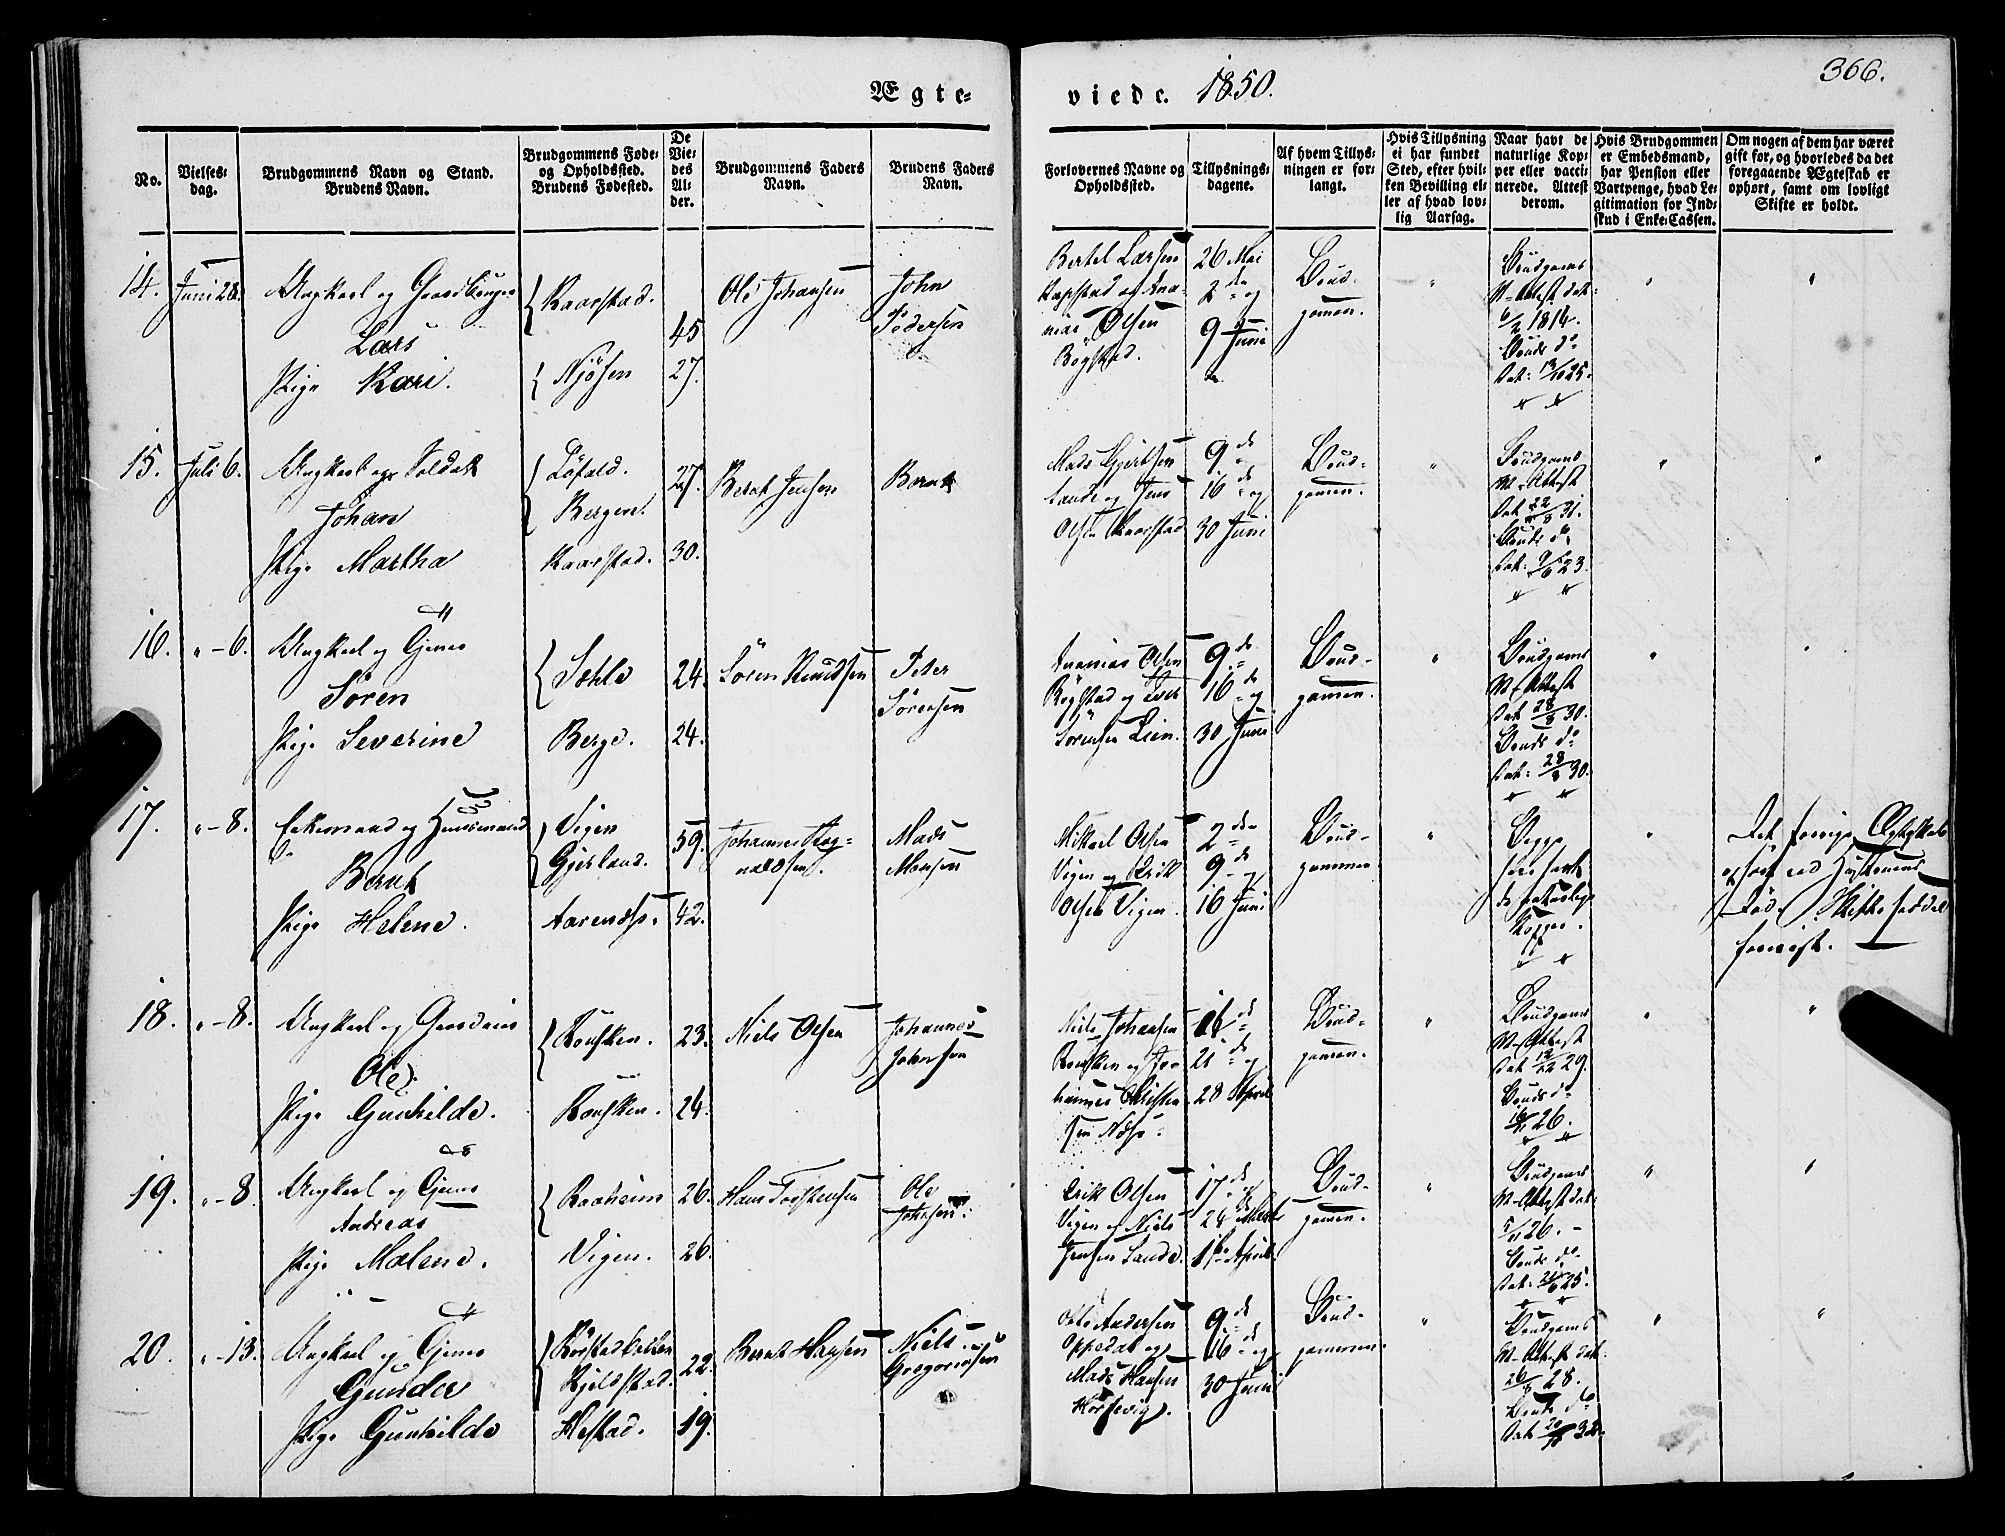 366.
Ægte-
viede. 1850.
No.
Vielses-
dag.
Brudgommens Navn og Stand.
Brudens Navn.
Brudgommens Føde-
og Opholdssted.
Brudens Fødested.
De
Vie-
des
Al-
der.
Brudgommens Faders
Navn.
Brudens Faders
Navn.
Forlovernes Navne og
Opholdssted.
Tillysnings-
dagene.
Af hvem Tillys-
ningen er for-
langt.
Hvis Tillysning
ei har fundet
Sted, efter hvil-
ken Bevilling el-
ler af hvad lov-
lig Aarsag.
Naar havt de
naturlige Kop-
per eller vacci-
nerede. Attest
derom.
Hvis Brudgommen
er Embedsmand,
har Pension eller
Vartpenge, hvad Le-
gitimation for Ind-
skud i Enke-Cassen.
Om nogen af dem har været
gift før, og hvorledes da det
foregaaende Ægteskab er
ophørt, samt om lovligt
Skifte er holdt.
14. Juni 28. Ungkarl og Gaardbruger
Lars
Pige Kari.
Kaarstad.
Njøsen
45
27.
Ole Johansen
John
Pedersen
Bertel Larsen
Olsen
Bøgstad.
26 Mai
2den og
9 Juni
Brud-
gomen.
Brudgoms
V-Attest dat
6/2 1814.
Bruds do
15. Juli 6. Ungkarl og Soldat
Johan
Pige Martha
Løfald.
Bergen.
Kaarstad.
27.
30.
Bernt Jensen
Bernt
Mads Gjertsen
Sande og Jens
Olsen Kaarstad
9de
16de og
30 Juni
Brud-
gomen.
Brudgoms
V-Attest
Bruds do
16. " - 6. Ungkarl og Tjener
Søren
Pige Severine
Sæhle
Berge.
24.
24.
Søren Knudsen
Peter
Sørensen
Ananias Olsen
Bøgstad og
Sørensen Lien.
9de
16de og
30 Juni
Brud-
gomen.
Brudgoms
V-Attest
dat 28/8 30.
Bruds do
dat: 28/8 30.
17. " - 8. Enkemand og Huusmand
Bernt
Pige Helene.
Vigen
Gjerland.
59.
42.
Johannes Rag-
naldsen.
Mads
Monsen
Mikael Olsen
Vigen og Erik
Olsen Vigen.
2den
9de og
16 Juni
Brud-
gommen
Begge
have havt
de naturlige
Kopper.
Det forrige Ægteskab
ophørt ved Hustruens
Død. Skifteseddel
foreviist.
18. " - 8. Ungkarl og
Ole
Pige Gunhilde.
23.
24.
Niels Olsen
Johannes
Johnsen
Niels Johansen
hannes Christen-
sen Næss.
21de og
28 April
Brud-
gomen.
Brudgoms
V-Attest
Bruds do
19. " - 8. Ungkarl og Tjener
Andreas
Pige Malene.
Raaheim
Vigen.
26.
26.
Hans Torstensen
Ole
Johnsen.
Erik Olsen
Vigen og Niels
Jensen Sande.
17de og
24de Marts
1ste April
Brud-
gomen.
Brudgoms
V-Attest dat
5/11 26.
Bruds do
20. " - 13. Ungkarl og Tjener
Gunder
Pige Gunhilde
Kjelstad.
Hestad.
22.
19.
Bernt Hansen
Niels
Gregoriusen
Otto Andersen
Oppedal og
Mads Hansen
Horsevig.
9de
16de og
30 Juni
Brud-
gommen.
Brudgoms
V-Attest dat:
26/8 28.
Bruds do